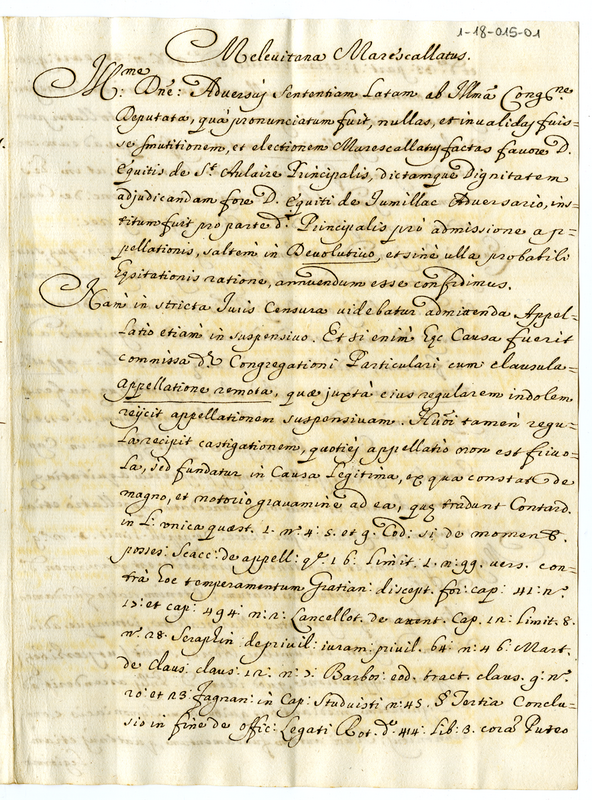 1-18-015-01
Melevitana Marescallatus.
Mme: Dñe: Adversus Sententiam Latam ab Illmâ Congne.
Deputata, quâ pronunciatum fuit, nullas, et invalidas fuis=
se                 , et electionem Marescallatus factas favore D.
Equitis de St. Aulaire Principalis, dictamque Dignitatem
adjudicandam fore D. Equiti de Jumillac Adversario, ins=
titum fuit pro parte d. Principalis pro admissione ap=
pellationis, saltem in Devolutivo, et sine ulla probabili
hesitationis ratione, annuendum esse confidimus.
Nam in stricta Juris Censura videbatur admittenda Appel=
latio etiam in suspensivo. Et si enim hęc Causa fuerit
commissa dę Congregationi Particulari cum clausula=
appellatione remota, quæ juxtà eius regularem indolem
reijcit appellationem suspensivam. Huic tamen regu=
la recipit castigationem, quoties appellatio non est frivo=
la, sed fundatur in Causa legitima, ex qua constat de
magno, et notorio gravamine ad ea, quę tradunt Contard.
in L: unica quæst. 1. nº. 4: 5. et 9. Cod: si de moment.
posses: Scacc: de appell: qº. 16: Limit. 1. n: 99. vers. con=
trà hoc temperamentum Gratian: discept. for: cap: 41: nº.
17: et cap: 494: n: 2: Lancellot. de attent. Cap. 12: Limit. 8.
nº. 28. Seraphin: de privil: iuram: privil. 64: n: 46: Mart.
de Claus. claus: 12: nº. 7: Barbos: eod. tract. claus. 9: nº.
20: et 23. Fagnan: in Cap: Studuisti n: 45. § Tertia Conclu=
sio in fine de offic: Legati Rot. dº. 414: lib: 3. corâ Puteo